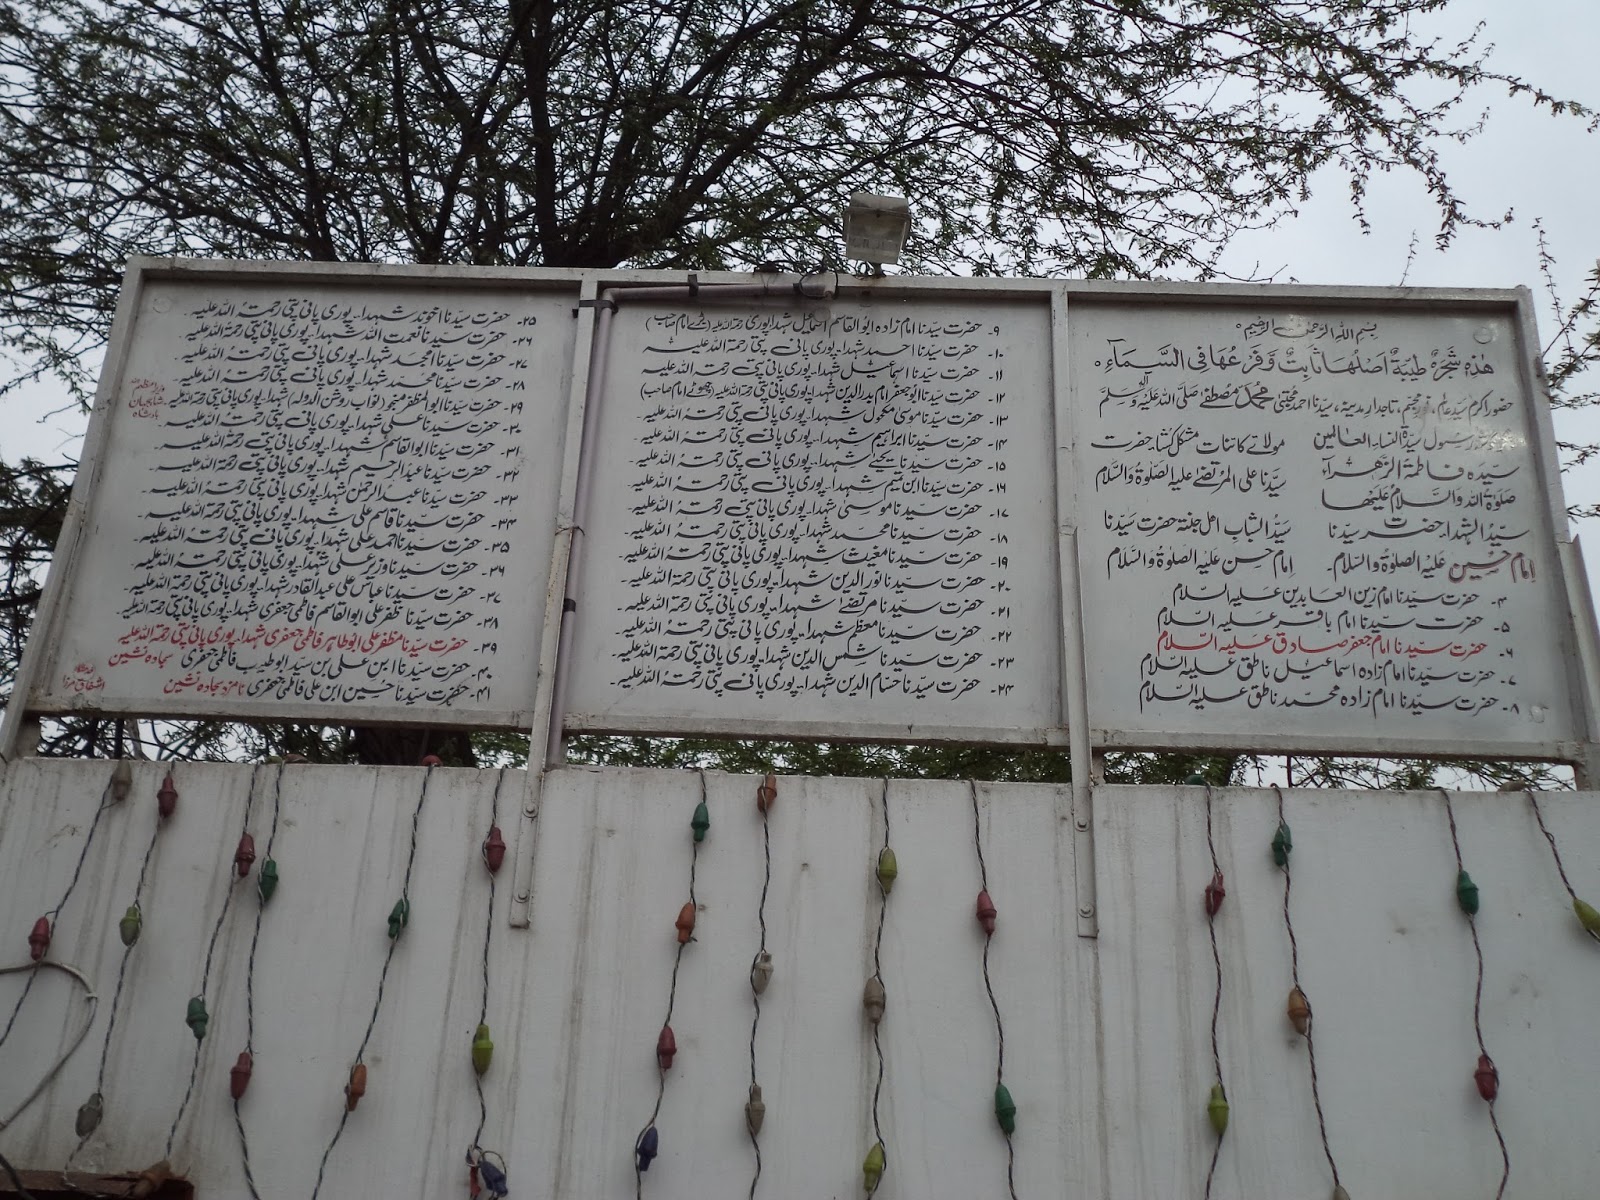 بسم اللہ الرحمن الرحیم
ھٰذہ شجرۃ طیبۃ اصلھا ثابت وفرعھا فی السماء
حضور اکرم سید عالم، نور مجسم، تاجدار مدینہ، سیدنا احمد مجتبیٰ محمد مصطفےٰ صلی اللہ علیہ وآلہ وسلم
رسول سیدۃ النساء العالمین
سیدہ فاطمۃ الزھراء
صلوٰۃ اللہ والسلام علیھا
مولائے کائنات مشکل کشا حضرت
سیدنا علی المرتضےٰ علیہ الصلوٰۃ والسلام
سید الشہداء حضرت سیدنا
امام حسین علیہ الصلوٰۃ والسلام
سید الشباب اھل جنۃ حضرت سیدنا
امام حسن علیہ الصلوٰۃ والسلام
۴۔ حضرت سیدنا امام زین العابدین علیہ السلام
۵۔ حضرت سیدنا امام باقر علیہ السلام
۶۔ حضرت سیدنا امام جعفر صادق علیہ السلام
۷۔ حضرت سیدنا امام زادہ اسماعیل ناطق علیہ السلام
۸۔ حضرت سیدنا امام زادہ محمد ناطق علیہ السلام
۹۔ حضرت سیدنا امام زادہ ابوالقاسم اسماعیل شہدا پوری رحمۃ اللہ علیہ (بڑے امام صاحب)
۱۰۔ حضرت سیدنا احمد شہدا۔پوری پانی پتی رحمۃ اللہ علیہ
۱۱۔ حضرت سیدنا اسماعیل شہدا۔پوری پانی پتی رحمۃ اللہ علیہ
۱۲۔ حضرت سیدنا ابوجعفر امام بدرالدین شہدا۔پوری پانی پتی رحمۃ اللہ علیہ (چھوٹے امام صاحب)
۱۳۔ حضرت سیدنا موسیٰ مکحول شہدا۔پوری پانی پتی رحمۃ اللہ علیہ
۱۴۔ حضرت سیدنا ابراہیم شہدا۔پوری پانی پتی رحمۃ اللہ علیہ
۱۵۔ حضرت سیدنا یحییٰ شہدا۔پوری پانی پتی رحمۃ اللہ علیہ
۱۶۔ حضرت سیدنا ابن تیم شہدا۔پوری پانی پتی رحمۃ اللہ علیہ
۱۷۔ حضرت سیدنا موسیٰ شہدا۔پوری پانی پتی رحمۃ اللہ علیہ۔
۱۸۔ حضرت سیدنا محمد شہدا۔پوری پانی پتی رحمۃ اللہ علیہ۔
۱۹۔ حضرت سیدنا مغیث شہدا۔پوری پانی پتی رحمۃ اللہ علیہ۔
۲۰۔ حضرت سیدنا نورالدین شہدا۔پوری پانی پتی رحمۃ اللہ علیہ۔
۲۱۔ حضرت سیدنا مرتضےٰ شہدا۔پوری پانی پتی رحمۃ اللہ علیہ۔
۲۲۔ حضرت سیدنا معظم شہدا۔پوری پانی پتی رحمۃ اللہ علیہ۔
۲۳۔ حضرت سیدنا شمس الدین شہدا۔پوری پانی پتی رحمۃ اللہ علیہ۔
۲۴۔ حضرت سیدنا حسام الدین شہدا۔پوری پانی پتی رحمۃ اللہ علیہ۔
۲۵۔ حضرت سیدنا اخوند شہدا۔پوری پانی پتی رحمۃ اللہ علیہ۔
۲۶۔ حضرت سیدنا نعمت اللہ شہدا۔پوری پانی پتی رحمۃ اللہ علیہ۔
۲۷۔ حضرت سیدنا امجد شہدا۔پوری پانی پتی رحمۃ اللہ علیہ۔
۲۸۔ حضرت سیدنا محمد شہدا۔پوری پانی پتی رحمۃ اللہ علیہ۔
۲۹۔ حضرت سیدنا ابوالمظفر منجو (نواب روشن الدولہ) شہدا۔پوری پانی پتی رحمۃ اللہ علیہ
شاہجہان
بادشاہ
۳۰۔ حضرت سیدنا علی شہدا۔پوری پانی پتی رحمۃ اللہ علیہ۔
۳۱۔ حضرت سیدنا ابوالقاسم شہدا۔پوری پانی پتی رحمۃ اللہ علیہ۔
۳۲۔ حضرت سیدنا عبدالرحیم شہدا۔پوری پانی پتی رحمۃ اللہ علیہ۔
۳۳۔ حضرت سیدنا عبدالرحمٰن شہدا۔پوری پانی پتی رحمۃ اللہ علیہ۔
۳۴۔ حضرت سیدنا قاسم علی شہدا۔پوری پانی پتی رحمۃ اللہ علیہ۔
۳۵۔ حضرت سیدنا احمد علی شہدا۔پوری پانی پتی رحمۃ اللہ علیہ۔
۳۶۔ حضرت سیدنا وزیر علی شہدا۔پوری پانی پتی رحمۃ اللہ علیہ۔
۳۷۔ حضرت سیدنا عباس علی عبدالقادر شہدا۔پوری پانی پتی رحمۃ اللہ علیہ
۳۸۔ حضرت سیدنا ظفر علی ابوالقاسم فاطمی جعفری شہدا۔پوری پانی پتی رحمۃ اللہ علیہ
۳۹۔ حضرت سیدنا مظفر علی ابوطاہر فاطمی جعفری شہدا۔پوری پانی پتی رحمۃ اللہ علیہ
۴۰۔ حضرت سیدنا ابن علی بن سید ابوطیب فاطمی جعفری سجادہ نشین
۴۱۔ حضرت سیدنا حسین ابن علی فاطمی جعفری نامزد سجادہ نشین
اشفاق مرزا